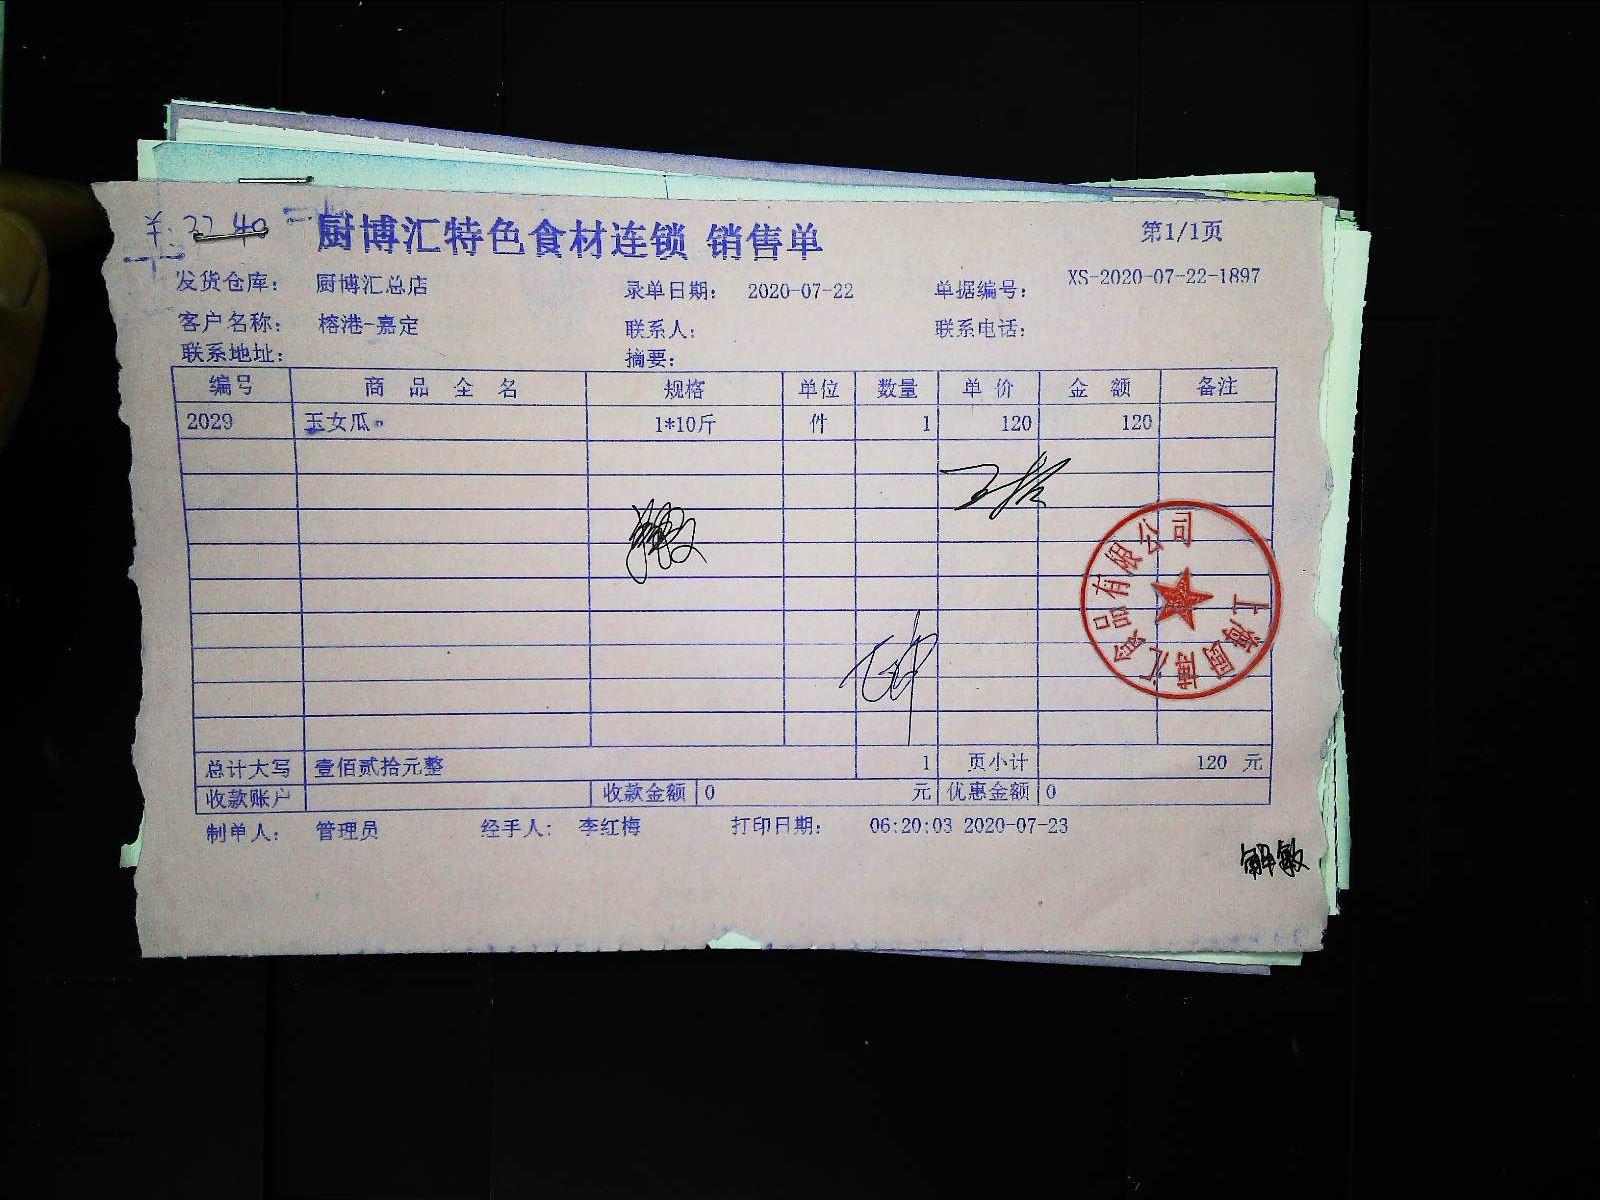 ¥:2240
厨博汇特色食材连锁 销售单
第1/1页
发货仓库: 厨博汇总店 录单日期: 2020-07-22 单据编号: XS-2020-07-22-1897
客户名称: 榕港-嘉定 联系人: 联系电话:
联系地址: 摘要:
编号 商品全名 规格 单位 数量 单价 金额 备注
2029 玉女瓜。 1*10斤 件 1 120 120
上海厨博汇食品有限公司
总计大写 壹佰贰拾元整 1 页小计 120 元
收款账户 收款金额 0 元 优惠金额 0
制单人: 管理员 经手人: 李红梅 打印日期: 06:20:03 2020-07-23
解敏